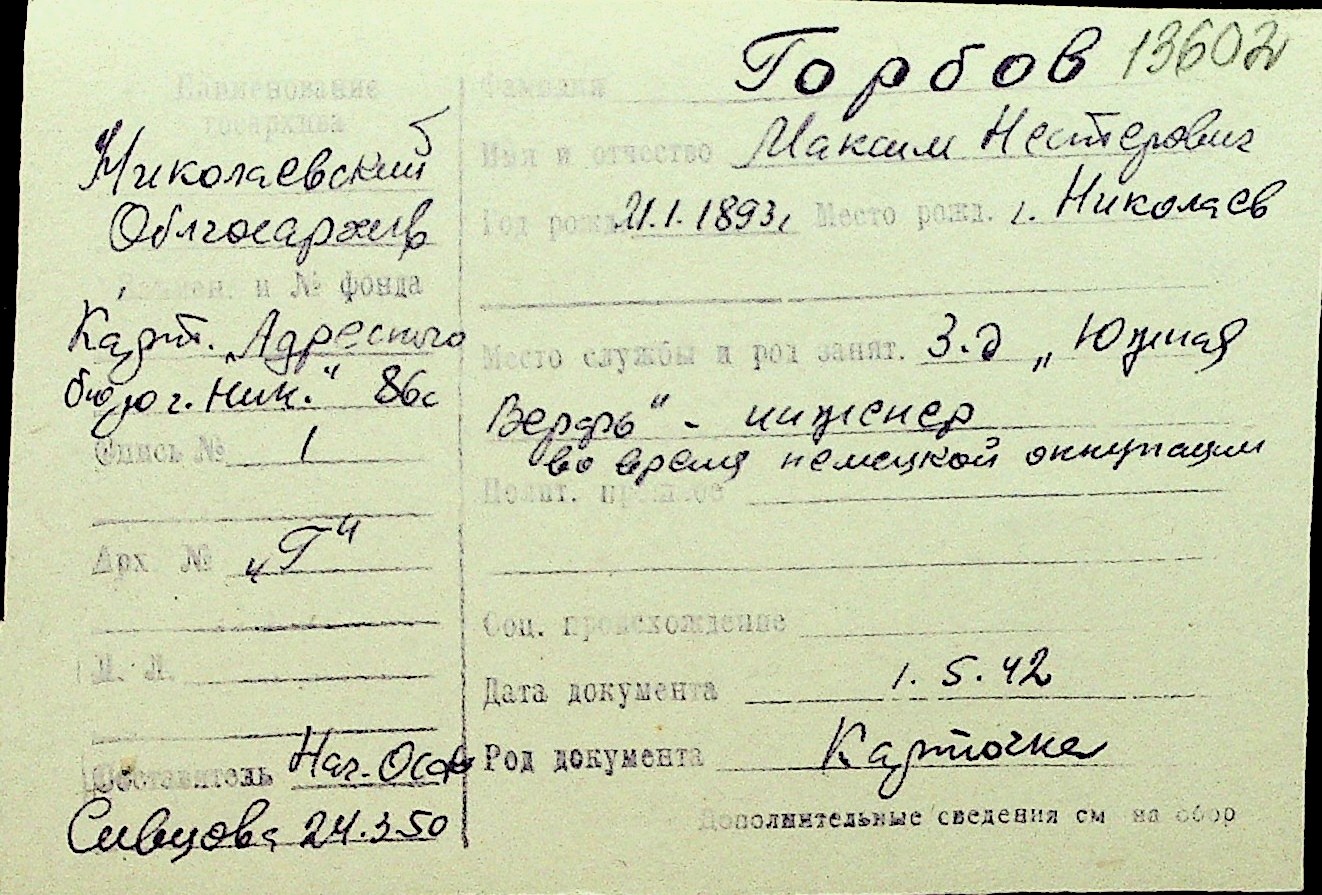 Горбов 13602
Наименование
госархива
Николаевский
Облгосархив
Наимен. и № фонда
Карт. „Адресного
бюро г. Ник." 86с
Опись № 1
Арх. № „Г"
Л. Л.
Составитель Нач.
Сивцова 24.3.50
Фамилия
Имя и отчество Максим Нестерович
Год рожд. 21.1.1893г Место рожд. г. Николаев
Место службы и род занят. з-д „Южная
Верфь" - инженер
во время немецкой оккупации
Полит. прошлое
Соц. происхождение
Дата документа 1.5.42
Род документа Карточка
Дополнительные сведения см на обор